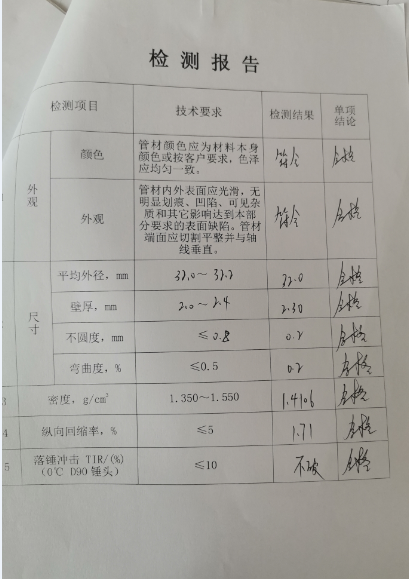 检测报告
检测项目 技术要求 检测结果 单项结论
外观
颜色 管材颜色应为材料本身颜色或按客户要求，色泽应均匀一致。 符合 合格
外观 管材内外表面应光滑，无明显划痕、凹陷、可见杂质和其它影响达到本部分要求的表面缺陷。管材端面应切割平整并与轴线垂直。 符合 合格
尺寸
平均外径，mm 32.0～32.2 32.0 合格
壁厚，mm 2.0～2.4 2.30 合格
不圆度，mm ≤0.8 0.2 合格
弯曲度，% ≤0.5 0.2 合格
3 密度，g/cm³ 1.350～1.550 1.4106 合格
4 纵向回缩率，% ≤5 1.71 合格
5 落锤冲击 TIR/(%) (0℃ D90 锤头) ≤10 不破 合格